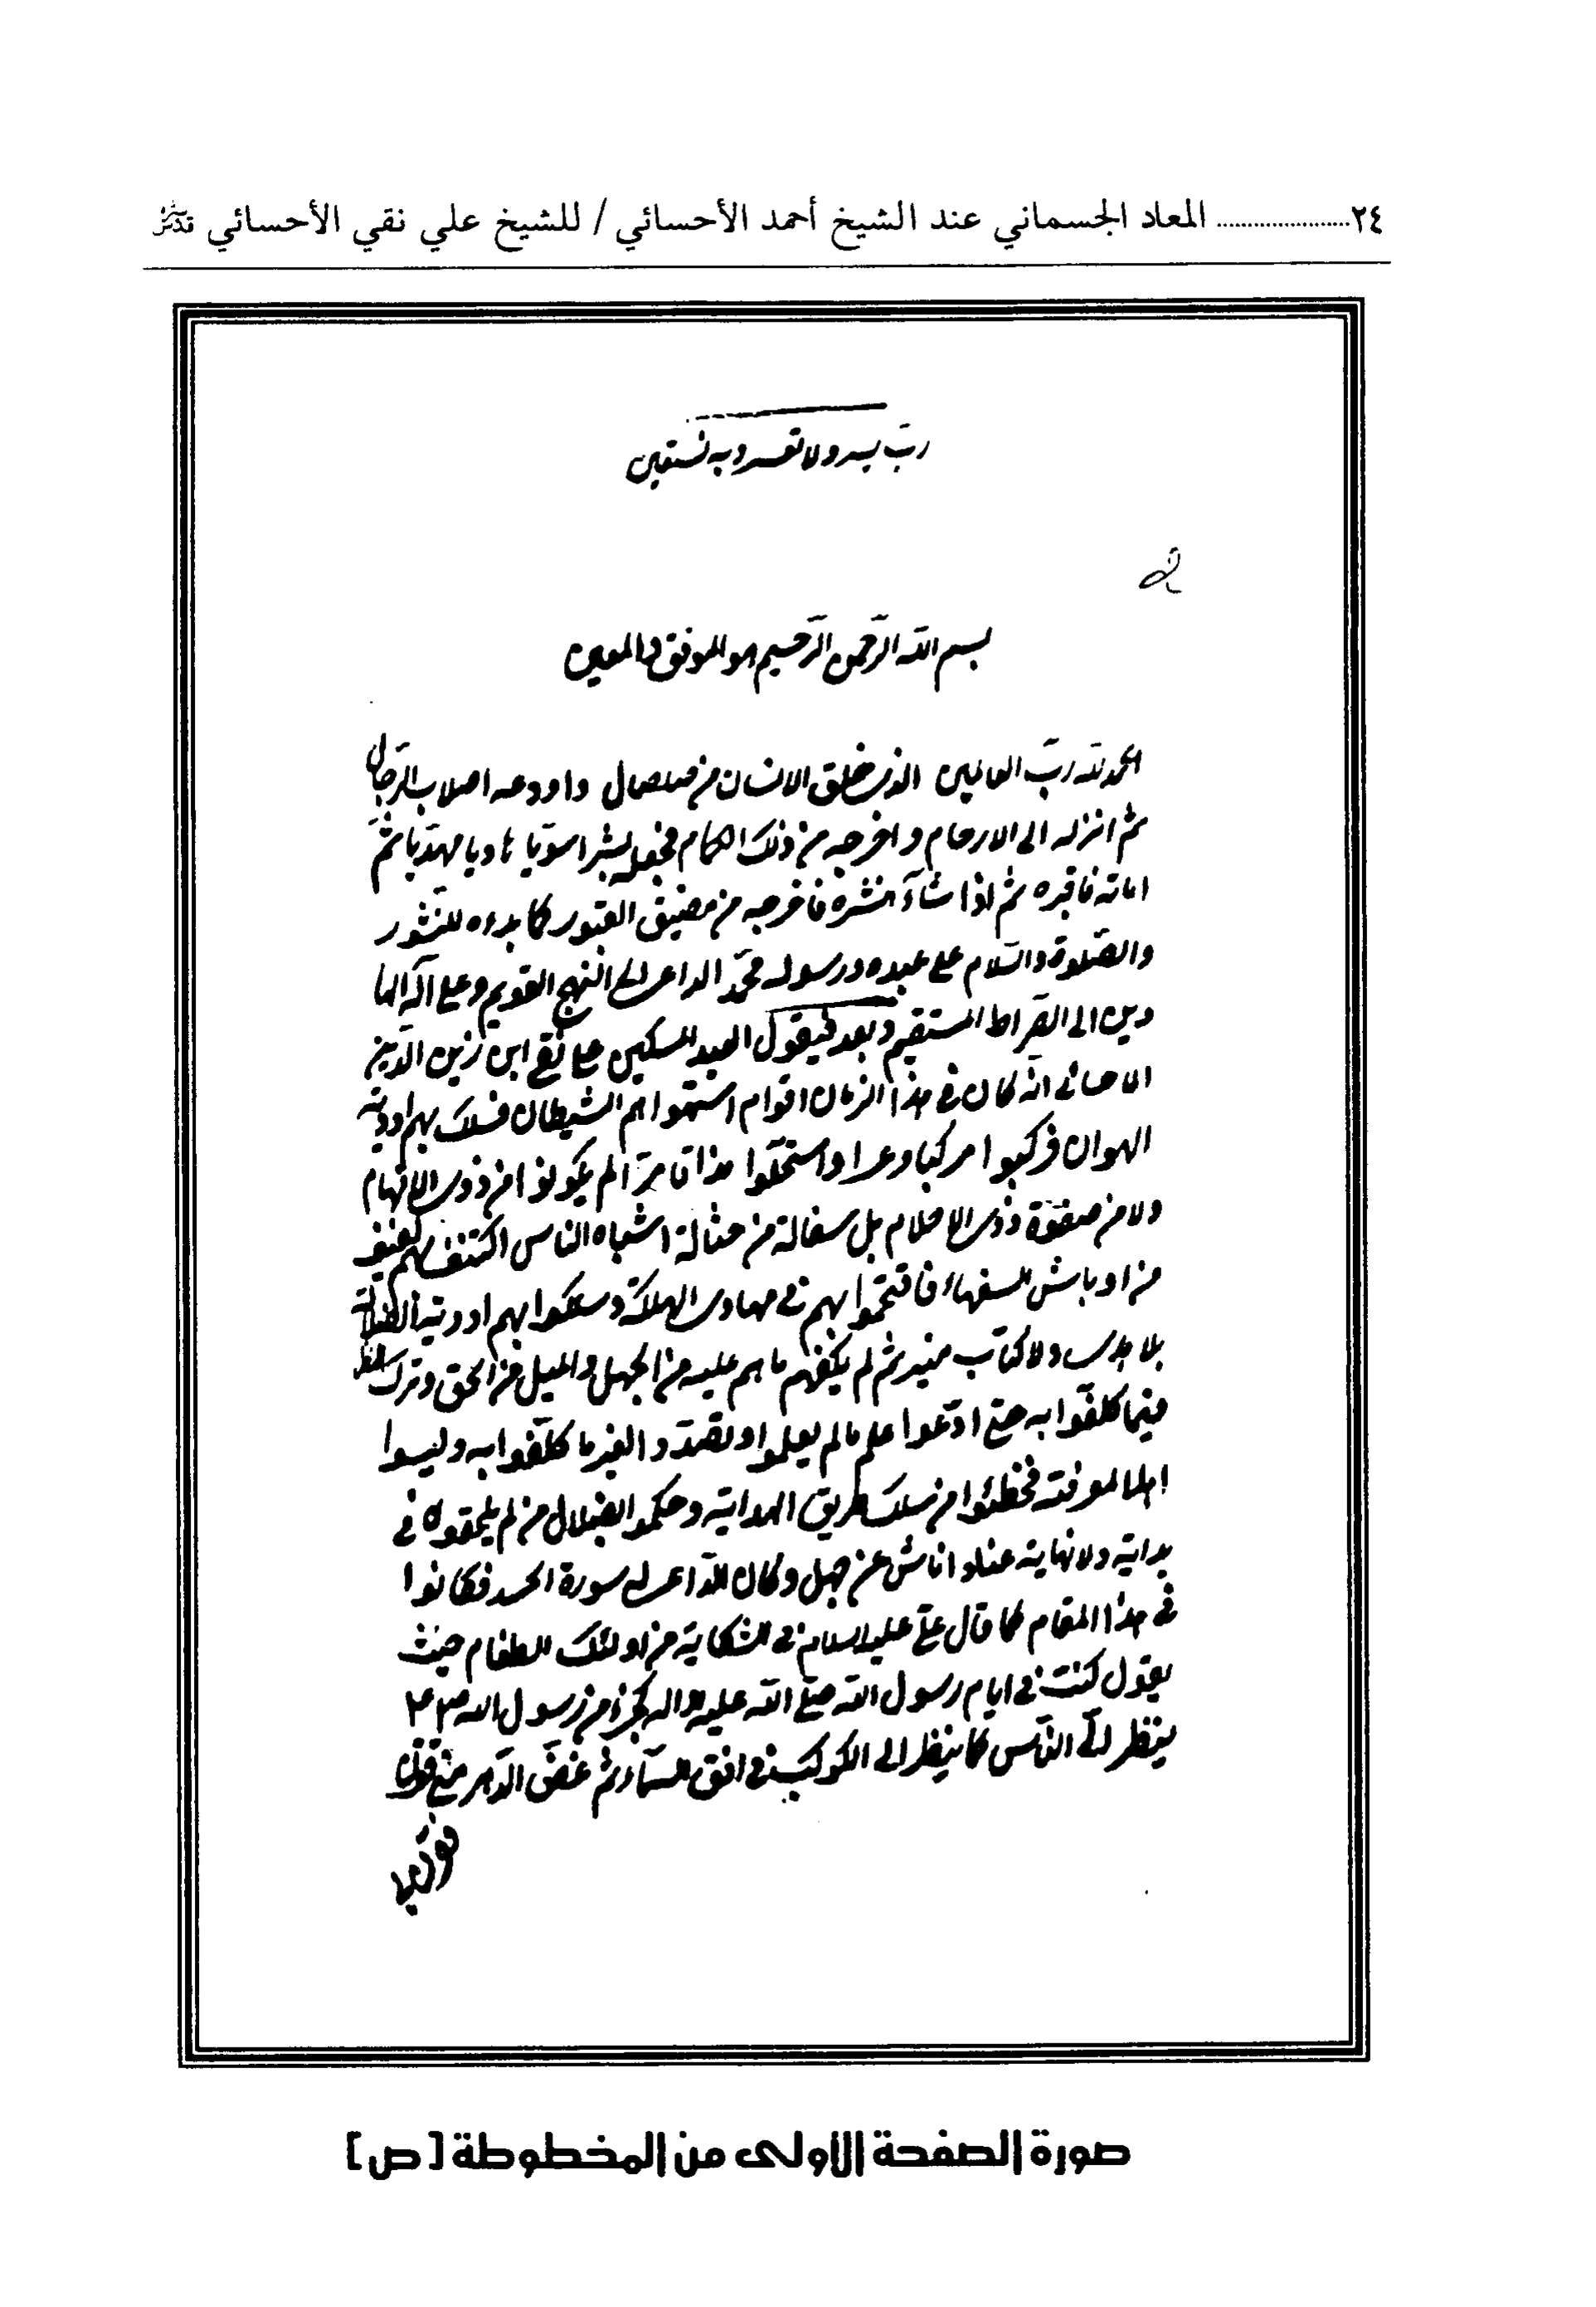 ٢٤..................... المعاد الجسماني عند الشيخ أحمد الأحسائي / للشيخ علي نقي الأحسائي
ربّ يسر ولا تعسر وبه نستعين
بسم الله الرّحمن الرّحيم هو الموفق والمعين
الحمد لله ربّ العالمين الذي خلق الانسان من صلصال واودعه اصلاب الرّجال
ثم انزله الى الارحام واخرجه من ذلك فجعله بشرا سويّا هاديا مهديّا ثمّ
اماته فاقبره ثم اذا شآء انشره فاخرجه من مضيق القبور كما بدءه للنّشور
والصّلوة والسّلام على عبده ورسوله محمّد الداعي الى النهج القويم وعلى آله الها
دين الى الصّراط المستقيم وبعد فيقول العبد المسكين علي نقي ابن زين الدّين
الاحسائي انّه كان في هذا الزمان اقوام الشيطان فسلك بهم اودية
الهوان فركبوا مركبا وعرا واستحلّوا مذاقا مرّا لم يكونوا من ذوي الافهام
ولا من صفوة ذوي الاحلام بل سفالة من حثالة اشباه الناس اكتنف بهم
من اوباش السفهاء فاقتحموا بهم في مهاوي الهلكة وسلكوا بهم اودية الضلالة
بلا هدى ولا كتاب منير ثم لم يكفهم ما هم عليه من الجهل والميل عن الحق وترك
فيما كلّفوا به حتى ادّعوا علم ما لم يعلموا وتصدّوا لغير ما كلّفوا به وليسوا
اهلا لمعرفته فخطّئوا من سلك طريق الهداية وحكموا بضلال من لم يلحقوه في
بداية ولا نهاية عنادا ناش عن جهل وكان الدّاعي له سورة الحسد فكانوا
في هذا المقام كما قال علي عليه السلام في الشكاية من اولئك الطغام حيث
يقول كنت في ايام رسول الله صلى الله عليه واله كجزء من رسول الله ص ع
ينظر اليّ النّاس كما ينظر الى الكوكب في افق السّمآء ثم غضّ الدّهر منّي
صورة الصفحة الأولى من المخطوطة [ص]